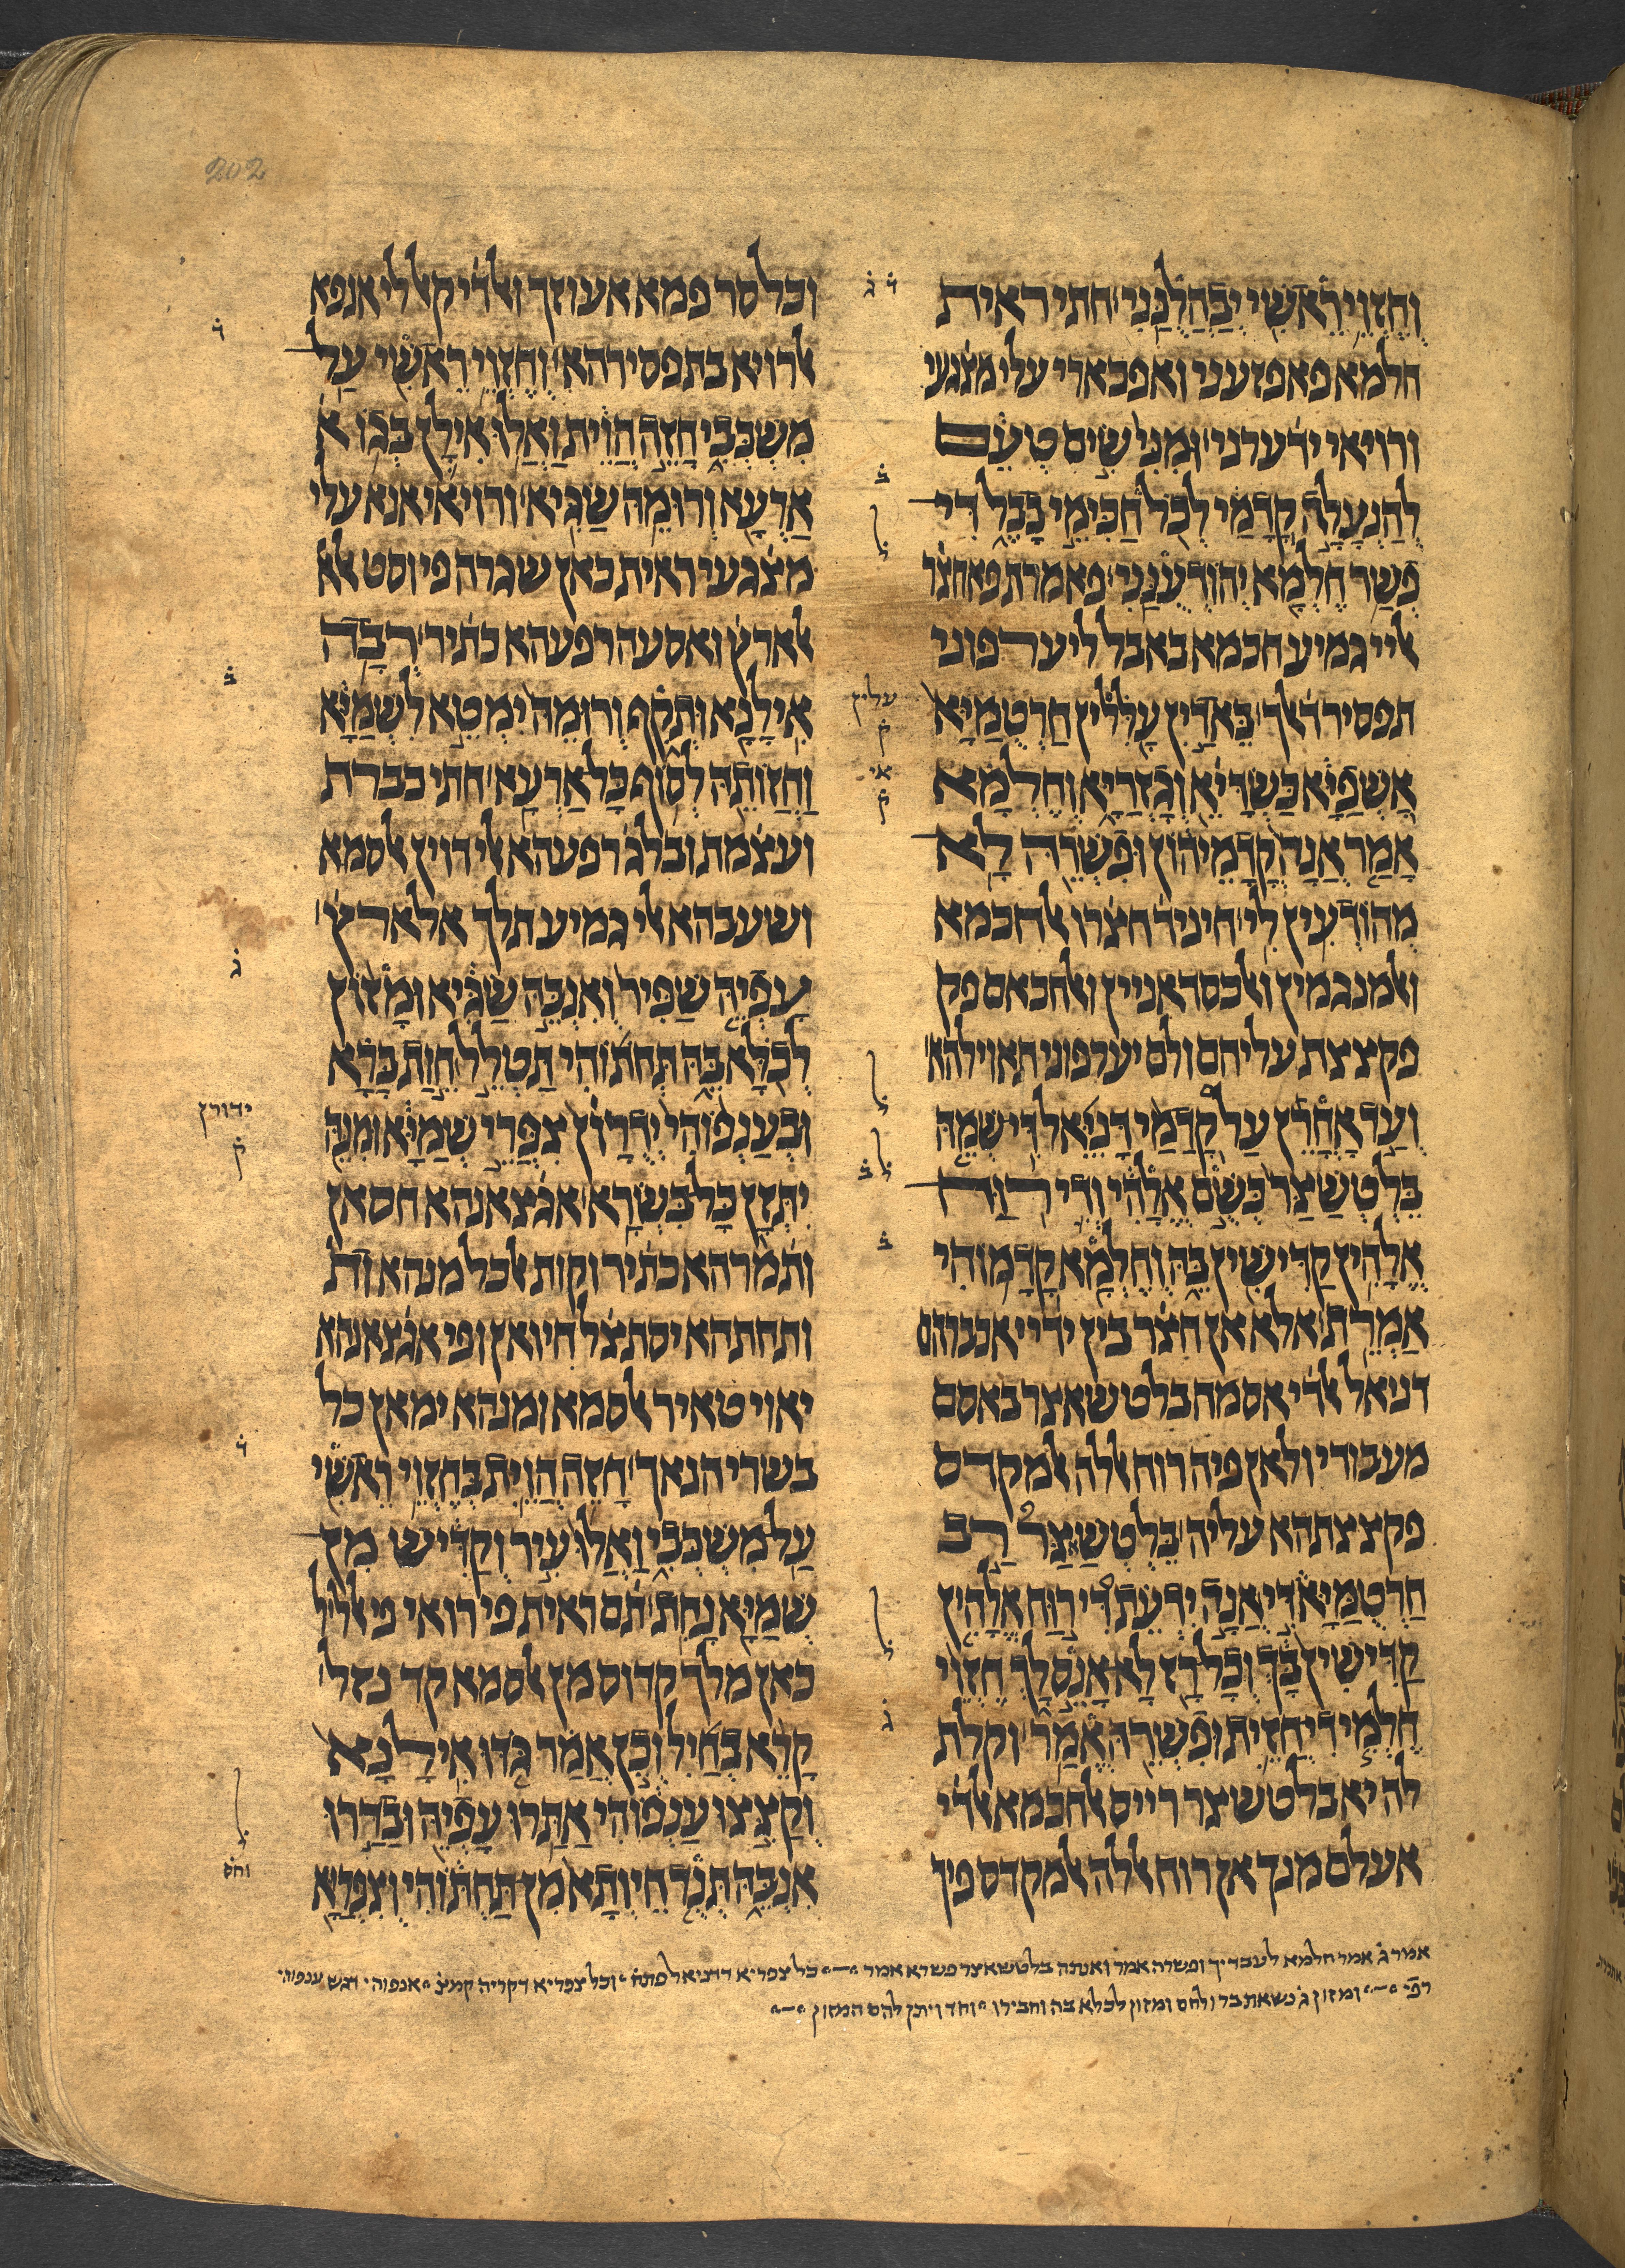 202
וחזוי ראשי יבהלנני חתי ראית
חלמא פאפזעני ואפכארי עלי מצגעי
ורויאי ידערני ומני שים טעם
להנעלה קדמי לכל חכימי בבל די
פשר חלמא יהודענני פאמרת פאחצר
אליי גמיע חכמא באבל ליערפוני
תפסיר דאלך באדין עללין חרטמיא
אשפיא כשדיא וגזריא וחלמא
אמר אנה קדמיהון ופשרה לא
מהודעין לי חיניד חצרו אלחכמא
ואלמנגמין ואלכסדאניין ואלחכאם פק
פקצצת עליהם ולם יערפוני תאוילהא
ועד אחרן על קדמי דניאל די שמה
בלטשאצר כשם אלהי ודי רוח
אלהין קדישין בה וחלמא קדמוהי
אמרת אלא אן חצר בין ידיי אכברהם
דניאל אלדי אסמה בלטשאצר באסם
מעבודי ולאן פיה רוח אללה אלמקדס
פקצצתהא עליה בלטשאצר רב
חרטמיא די אנה ידעת די רוח אלהין
קדישין בך וכל רז לא אנס לך חזוי
חלמי די חזית ופשרה אמר וקלת
לה יא בלטשיצר רייס אלחכמא אלדי
אעלם מנך אן רוח אללה אלמקדס פיך
וכל סר פמא אעוזך ואלדי קאל לי אנפא
אלרויא בתפסירהא וחזוי ראשי על
משכבי חזה הוית ואלו אילן בגוא
ארעא ורומה שגיא ורויאי אנא עלי
מצגעי ראית כאן שגרה פי וסט אלא
אלארץ ואסעה רפעהא כתיר רבה
אילנא ותקף ורומה ימטא לשמיא
וחזותה לסוף כל ארעא חתי כברת
ועצמת ובלג רפעהא אלי דוין אלסמא
ושעבהא אלי גמיע תלך אלארץ
עפיה שפיר ואנבה שגיא ומזון
לכלא בה תחתוהי תטלל חות ברא
ובענפוהי ידרון צפרי שמיא ומנה
יתזן כל בשרא אגצאנהא חסאן
ותמרהא כתיר וקות אלכל מנהא ות
ותחתהא יסתצל חיואן ופי אגצאנהא
יאוי טאיר אלסמא ומנהא ימאן כל
בשרי הנאך חזה הוית בחזוי ראשי
על משכבי ואלו עיר וקדיש מן
שמיא נחת תם ראית פי רואי פי אליל
כאן מלך קדוס מן אלסמא קד נזל
קרא בחיל וכן אמר גדו אילנא
וקצצו ענפוהי אתרו עפיה ובדרו
אנבה תנד חיותא מן תחתוהי וצפריא
אמר ג אמר חלמא לעבדיך ופשרה אמר ואנתה בלטשאצר פשרא אמר כל צפריא דדניאל פתח וכל צפריא דקריה קמצ אנפוהי דגש ענפוהי
רפי ומזון ג נשאת בר ולחם ומזון לכלא בה וחבירו וחד ויתן להם המזון